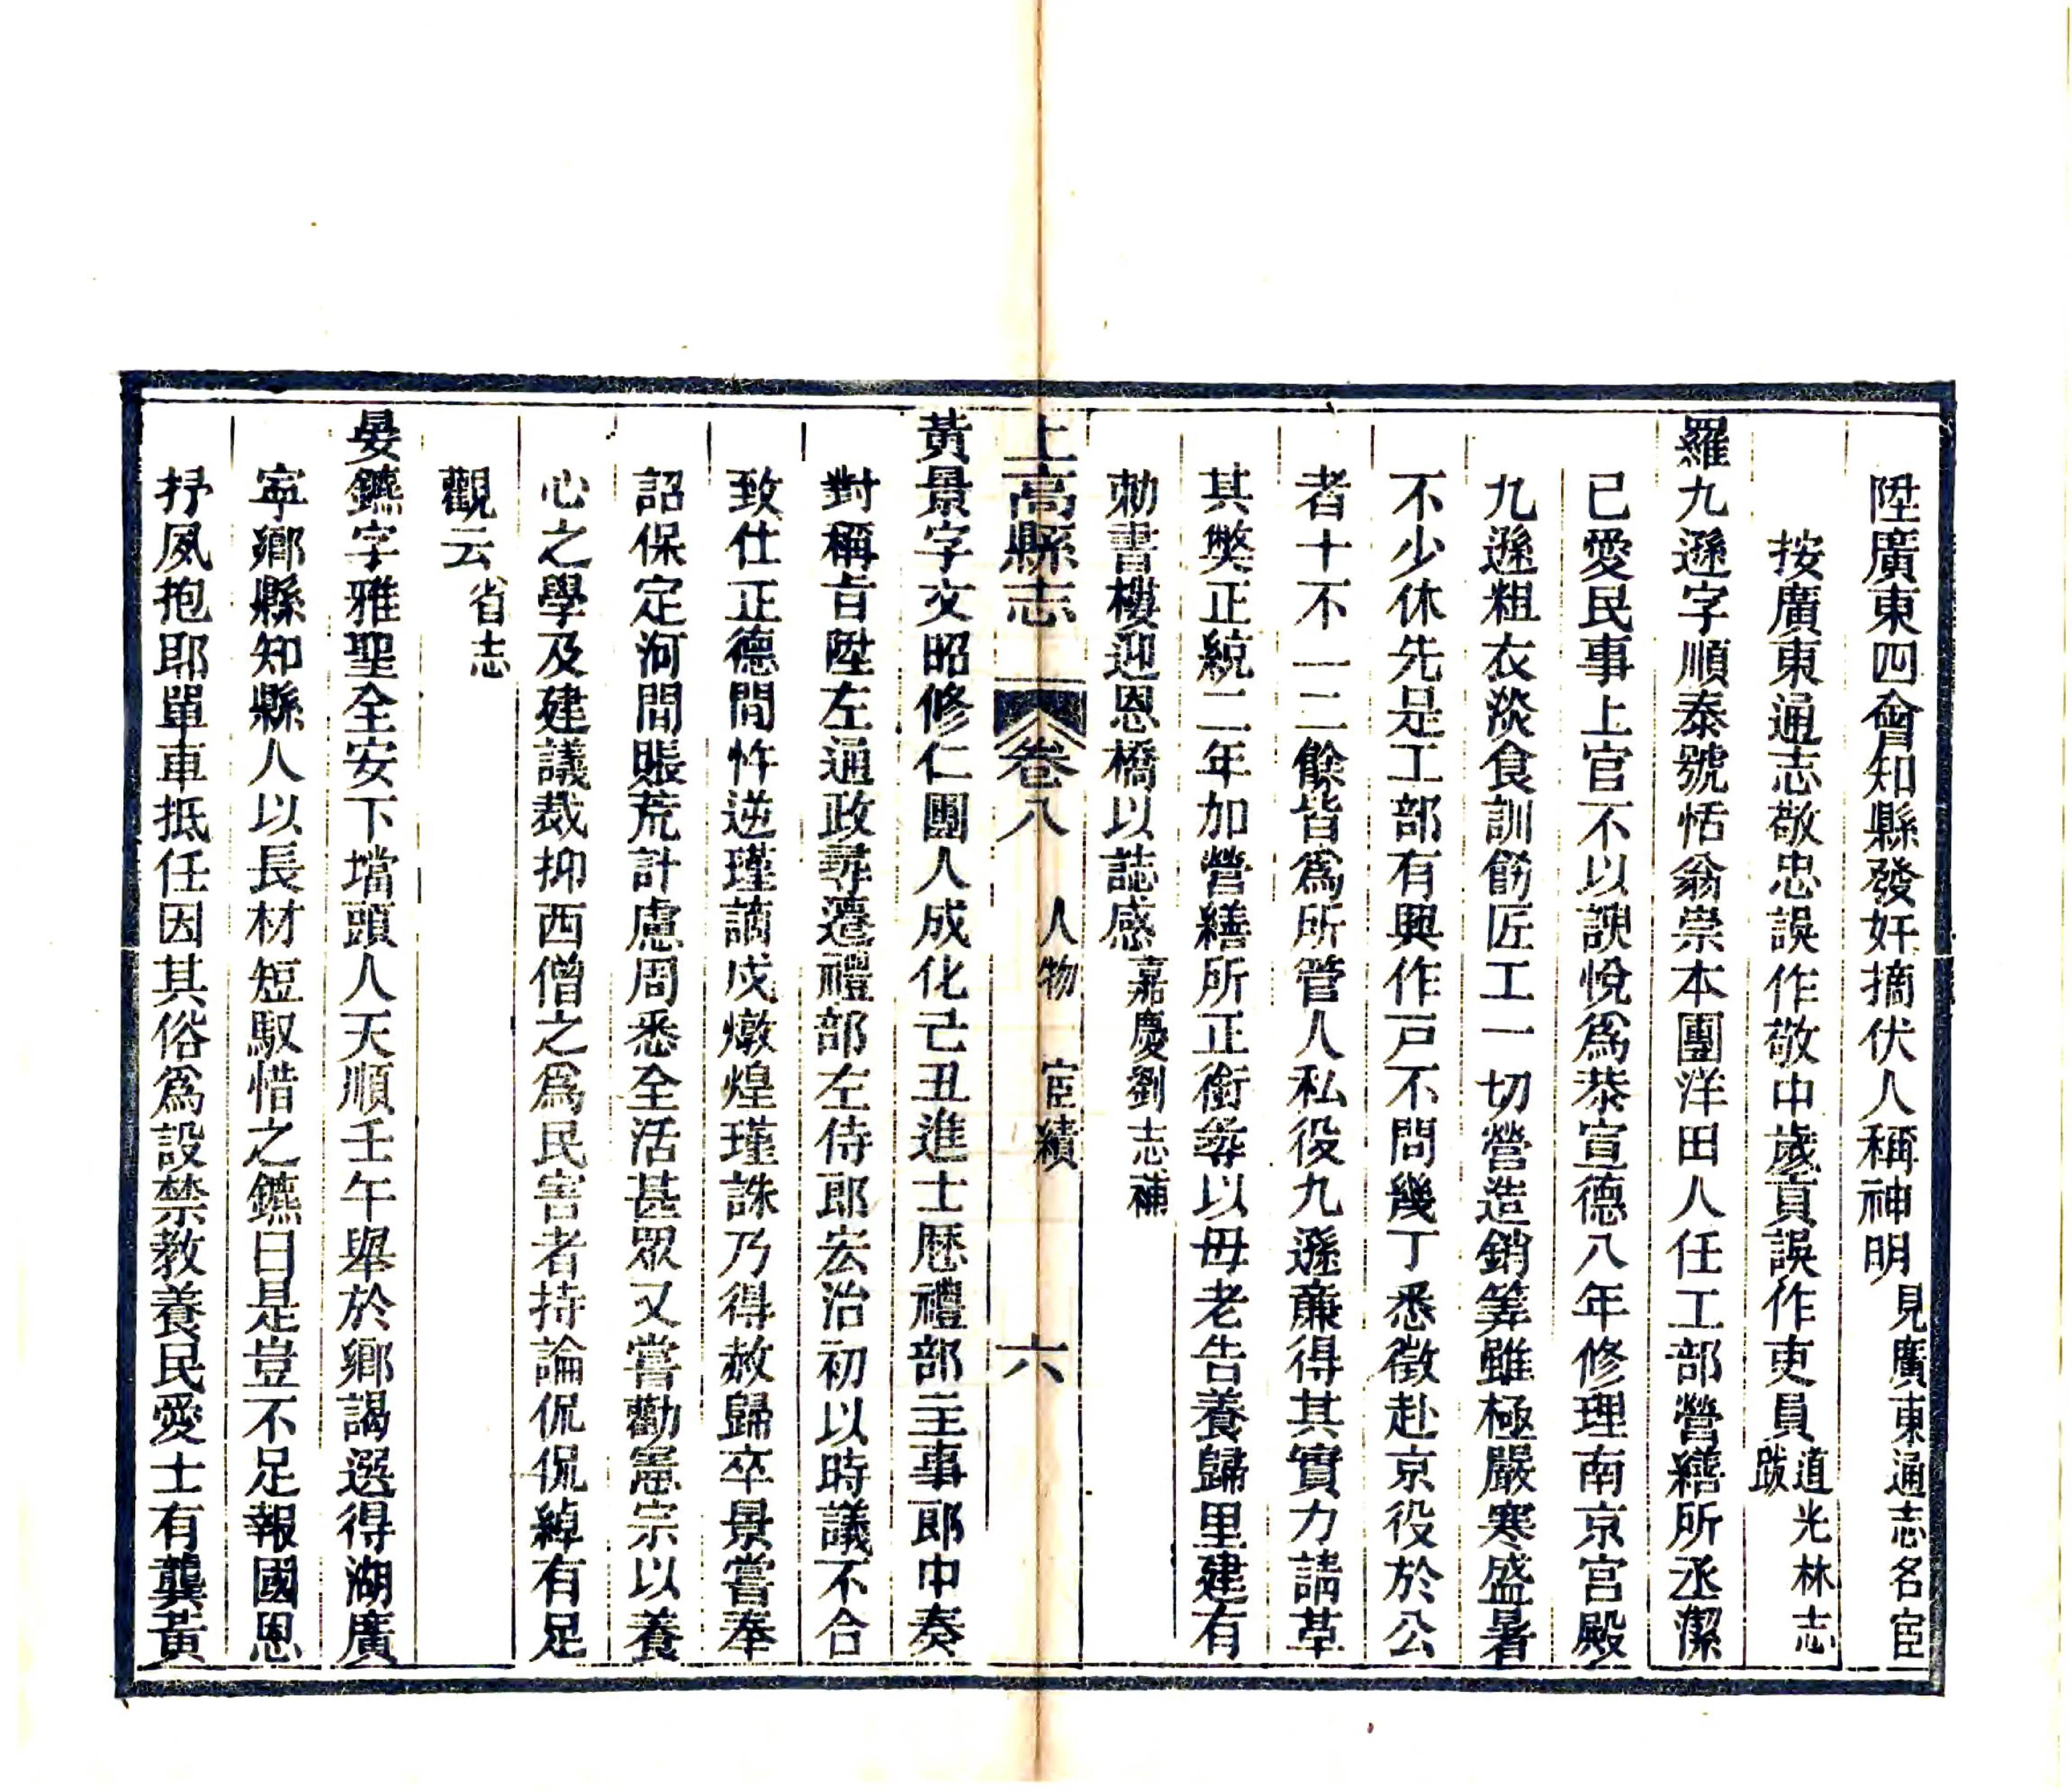 陞廣東四會知縣發奸摘伏人稱神明見廣東通志名宦
按廣東通志敬忠誤作敬中歲貢誤作吏員道光林志跋
羅九遜字順泰號恬翁崇本團洋田人任工部營繕所丞潔
已愛民事上官不以諛悅爲恭宣德八年修理南京宮殿
九遜粗衣淡食訓飭匠工一切營造銷筭雖極嚴寒盛暑
不少休先是工部有興作戸不問幾丁悉徵赴京役於公
者十不一二餘皆爲所管人私役九遜廉得其實力請革
其獘正統二年加營繕所正銜尋以母老告養歸里建有
勅書樓迎恩橋以誌感嘉慶劉志補
上高縣志 卷八 人物 宦績 六
黃景字文昭修仁團人成化己丑進士歷禮部主事郎中奏
對稱旨陞左通政尋遷禮部左侍郎宏治初以時議不合
致仕正德間忤逆瑾謫戍燉煌瑾誅乃得赦歸卒景嘗奉
詔保定河間賑荒計慮周悉全活甚眾又嘗勸憲宗以養
心之學及建議裁抑西僧之爲民害者持論侃侃綽有足
觀云省志
晏鑣字雅聖全安下壋頭人天順壬午舉於鄉謁選得湖廣
寧鄉縣知縣人以長材短馭惜之鑣曰是豈不足報國恩
抒夙抱耶單車抵任因其俗爲設禁教養民愛士有龔黃